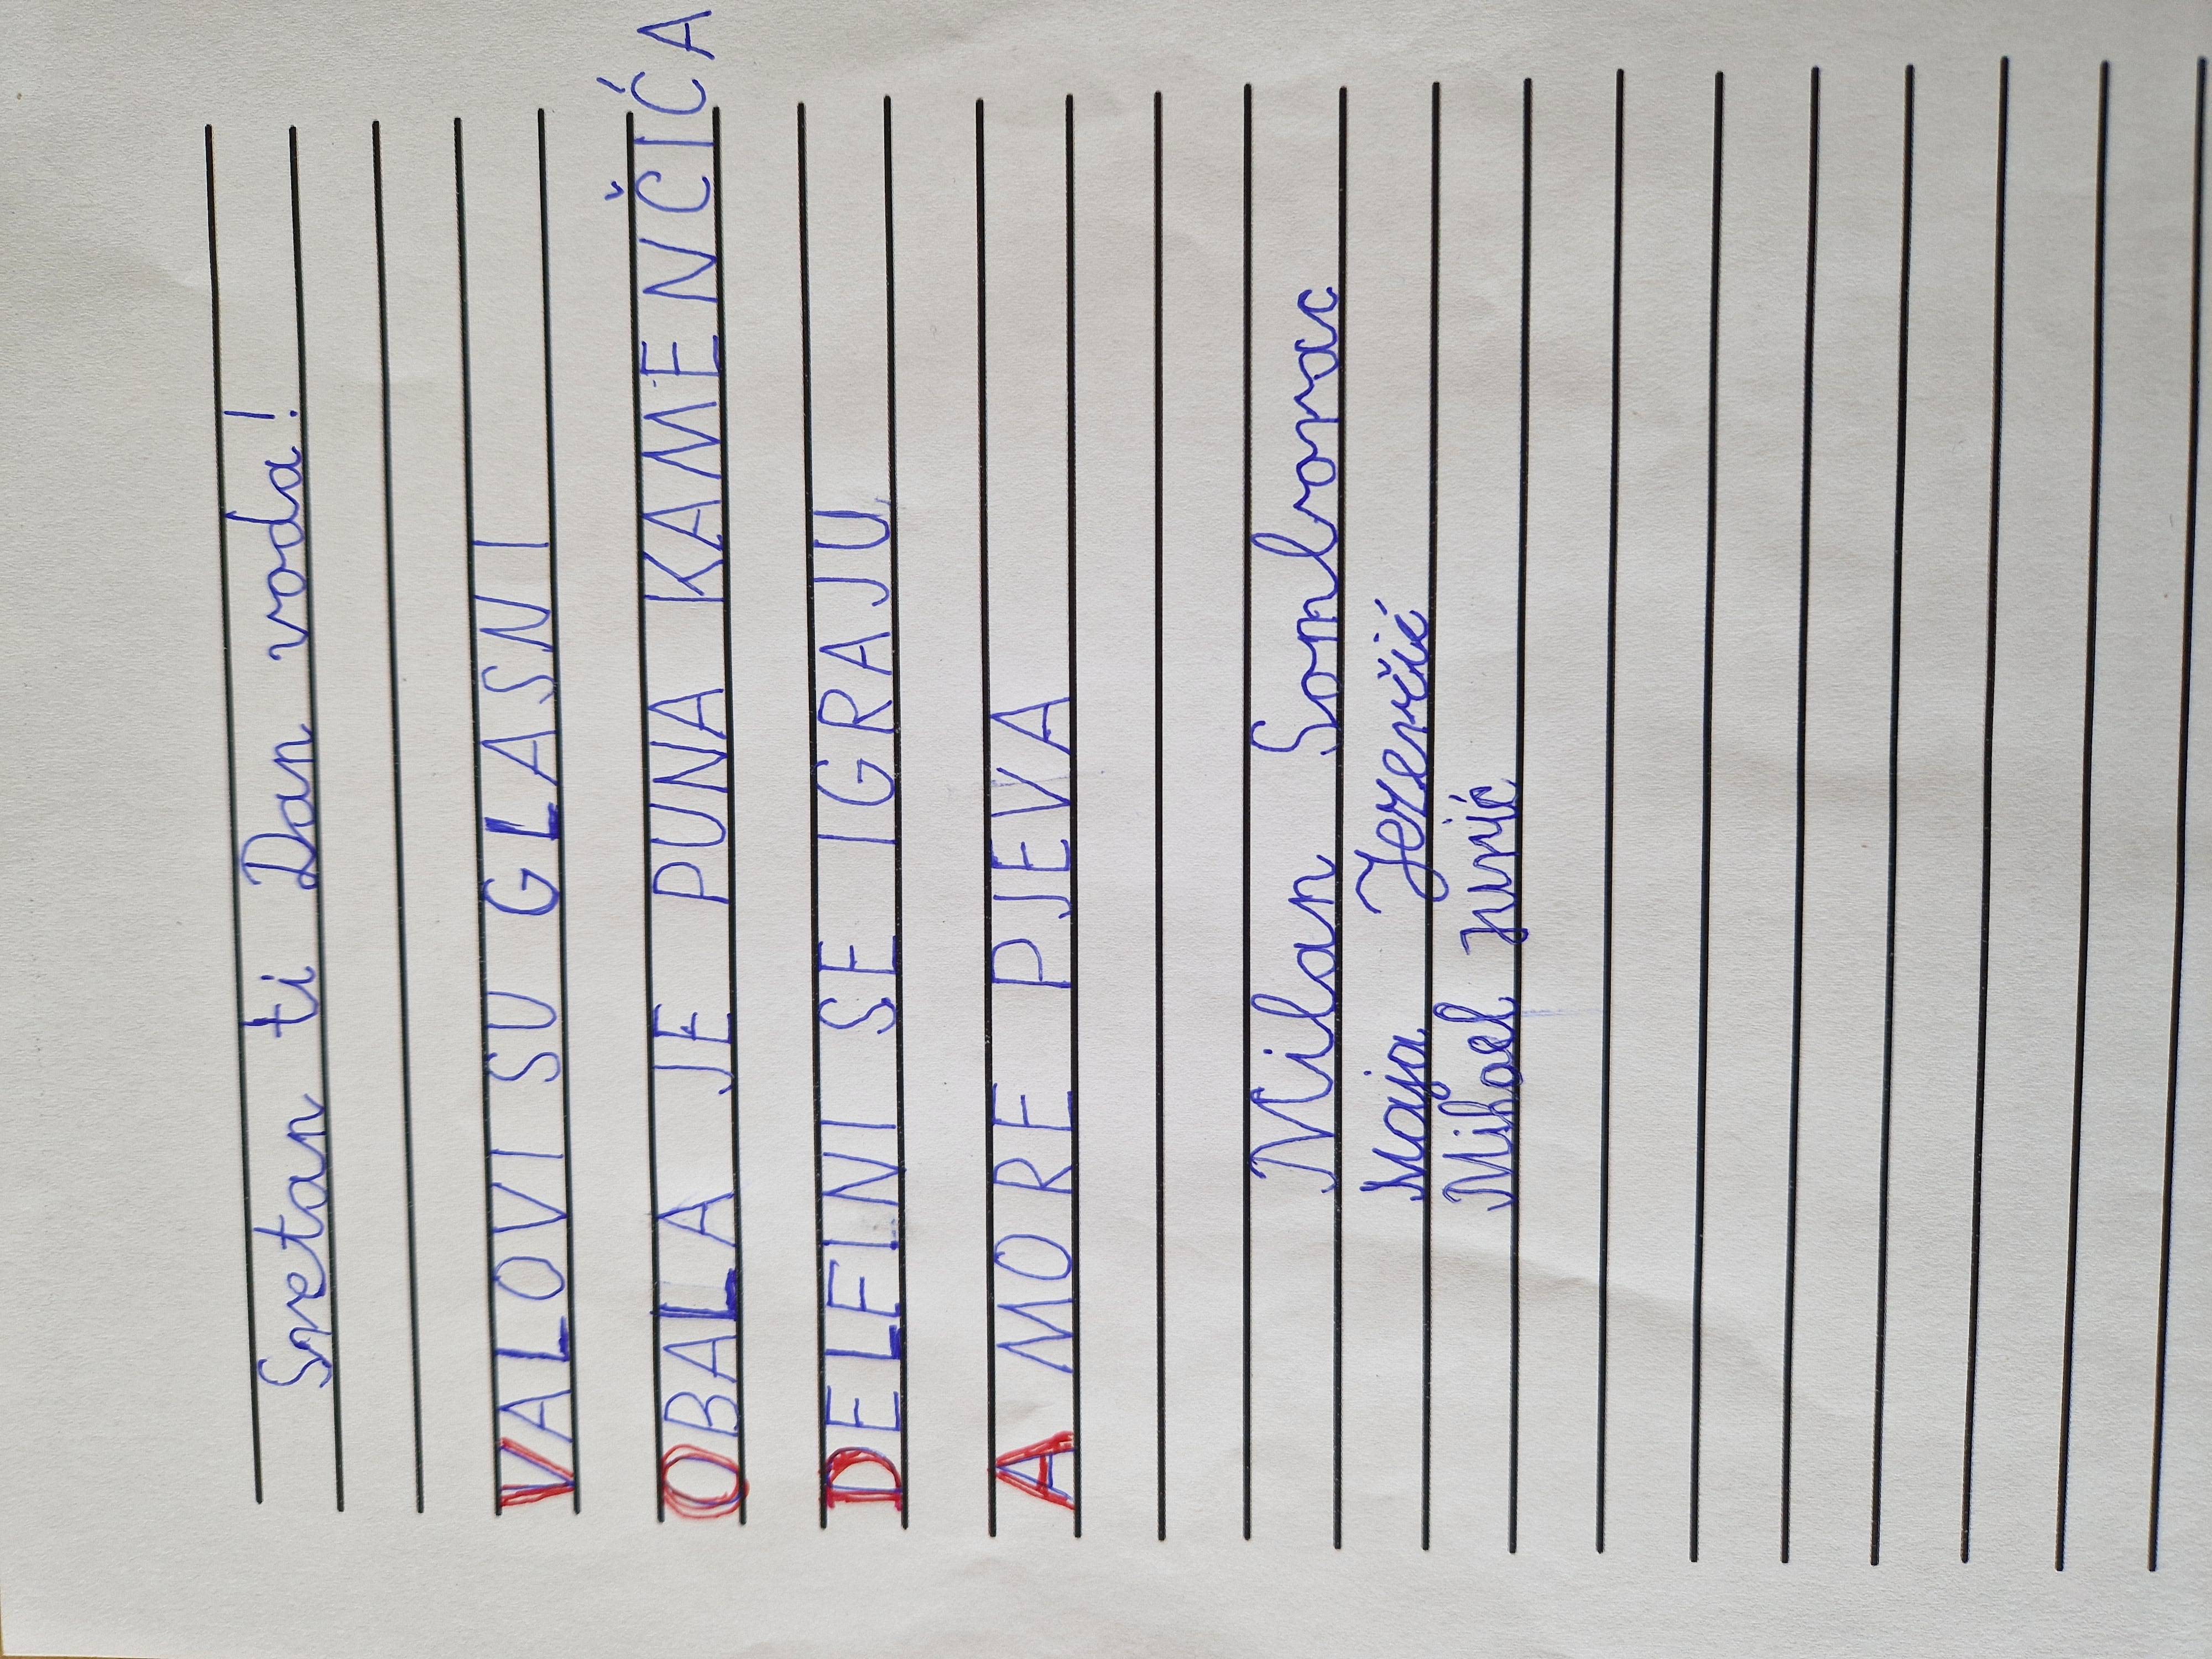 Sretan ti Dan voda!
VALOVI SU GLASNI
OBALA JE PUNA KAMENČIĆA
DELFINI SE IGRAJU
A MORE PJEVA
Milan Somborac
Maja Jezerčić
Mihael Jurić